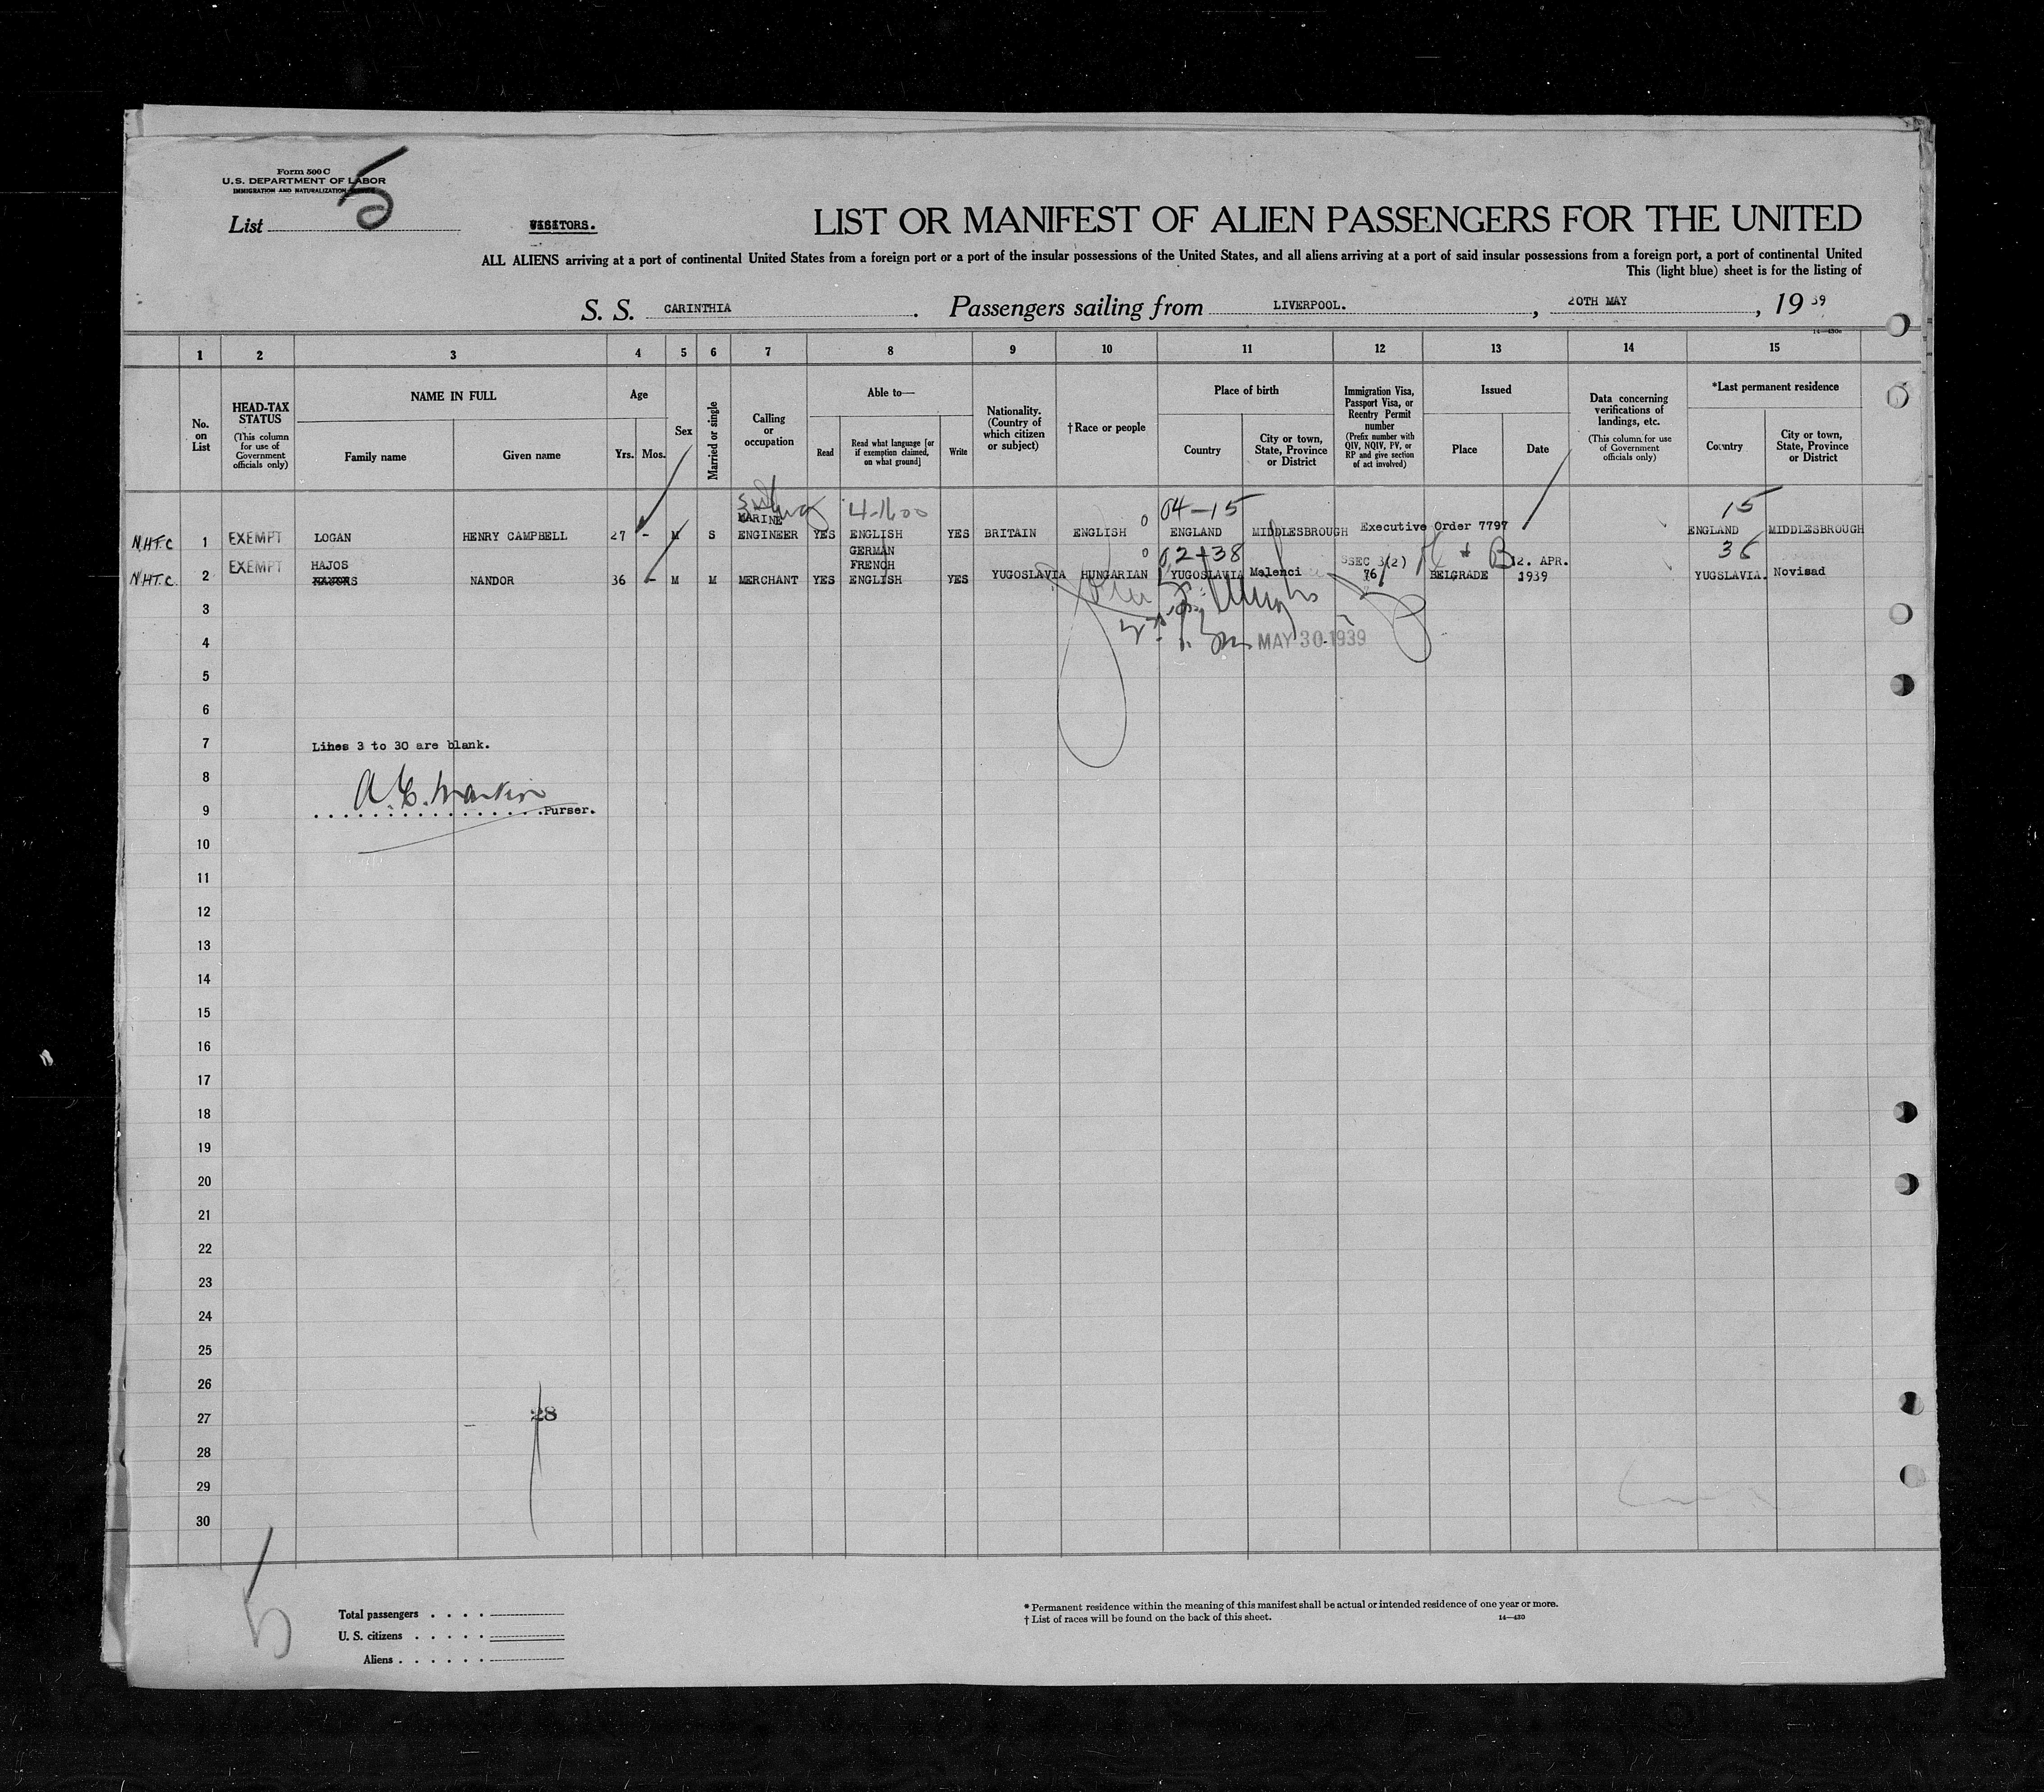 Form 500 C
U.S. DEPARTMENT OF LABOR
IMMIGRATION AND NATURALIZATION
List 5
VISITORS.
LIST OR MANIFEST OF ALIEN PASSENGERS FOR THE UNITED
ALL ALIENS arriving at a port of continental United States from a foreign port or a port of the insular possessions of the United States, and all aliens arriving at a port of said insular possessions from a foreign port, a port of continental United
This (light blue) sheet is for the listing of
S. S. CARINTHIA. Passengers sailing from LIVERPOOL., 20TH MAY, 19 39
14—430c
1 2 3 4 5 6 7 8 9 10 11 12 13 14 15
No. on List
HEAD-TAX STATUS (This column for use of Government officials only)
NAME IN FULL
Family name
Given name
Age
Yrs. Mos.
Sex
Married or single
Calling or occupation
Able to—
Read
Read what language [or if exemption claimed, on what ground]
Write
Nationality. (Country of which citizen or subject)
†Race or people
Place of birth
Country
City or town, State, Province or District
Immigration Visa, Passport Visa, or Reentry Permit number (Prefix number with QIV, NQIV, PV, or RP and give section of act involved)
Issued
Place
Date
Data concerning verifications of landings, etc. (This column for use of Government officials only)
*Last permanent residence
Country
City or town, State, Province or District
4-1600 04-15 15
N.H.T.C 1 EXEMPT LOGAN HENRY CAMPBELL 27 - M S MARINE ENGINEER YES ENGLISH YES BRITAIN ENGLISH 0 ENGLAND MIDDLESBROUGH Executive Order 7797 ENGLAND MIDDLESBROUGH
02+38 36
N.H.T.C. 2 EXEMPT HAJOS NANDOR 36 - M M MERCHANT YES GERMAN FRENCH ENGLISH YES YUGOSLAVIA HUNGARIAN 0 YUGOSLAVIA Melenci SEC 3(2) 76 BELGRADE 12. APR. 1939 YUGSLAVIA. Novisad
3
4 MAY 30 1939
5
6
7 Lines 3 to 30 are blank.
8
9 Purser.
10
11
12
13
14
15
16
17
18
19
20
21
22
23
24
25
26
27 28
28
29
30
5
Total passengers
U. S. citizens
Aliens
* Permanent residence within the meaning of this manifest shall be actual or intended residence of one year or more.
† List of races will be found on the back of this sheet.
14—430